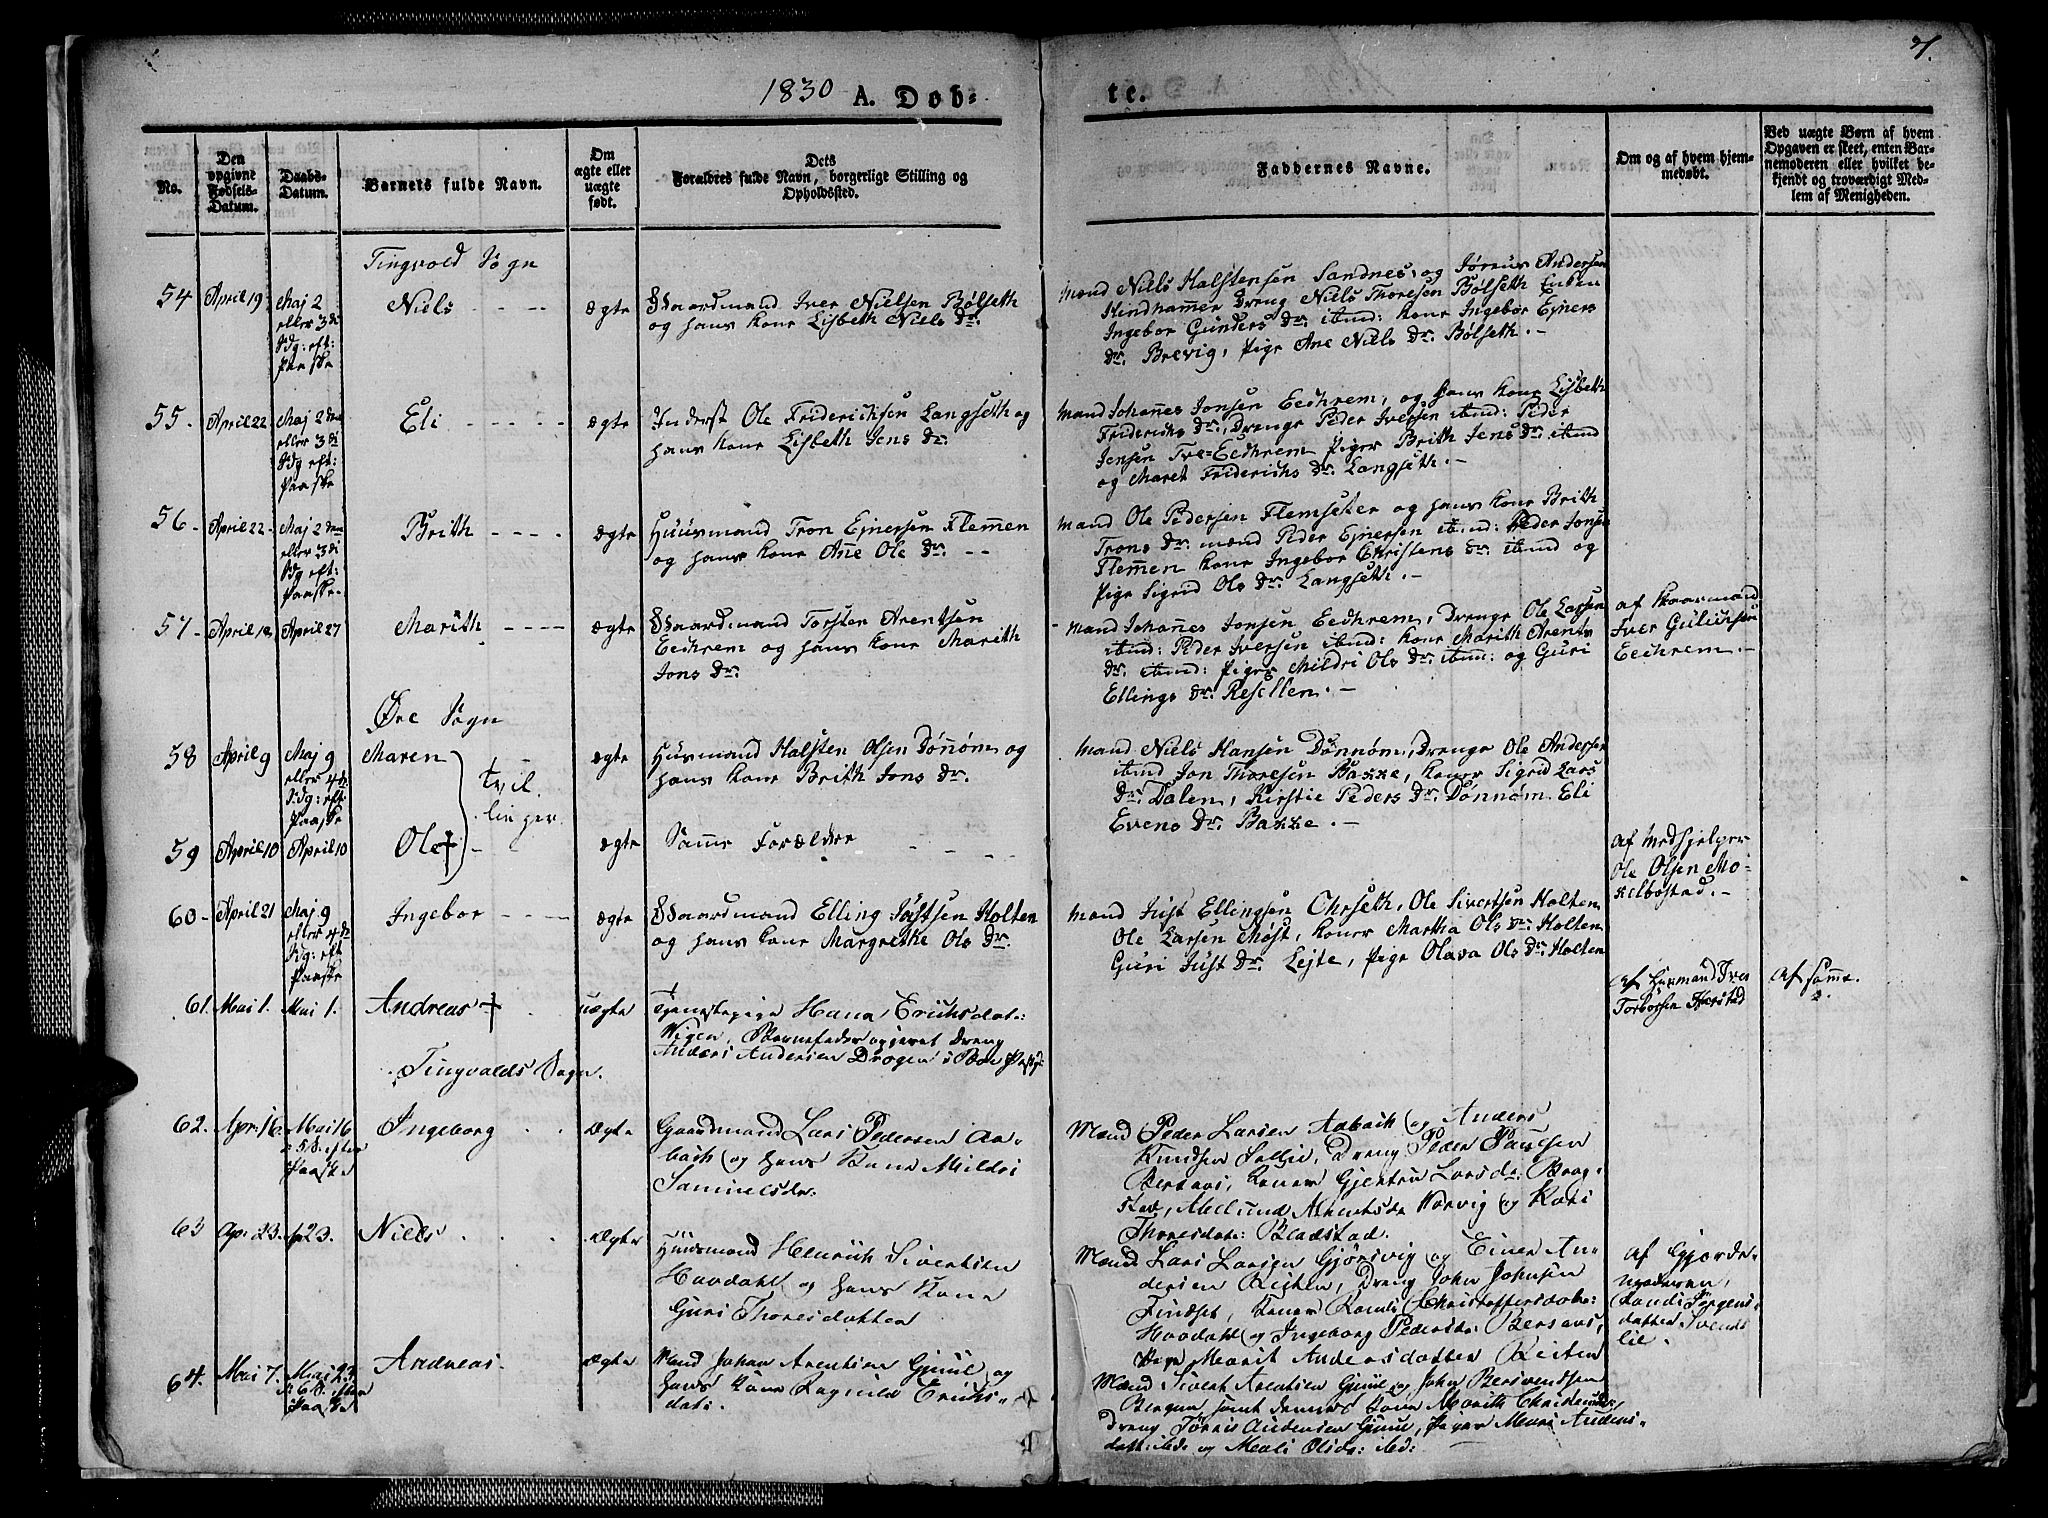 1830 A. Døb-
te.
7.
No.
Den opgivne Fødsels-Datum.
Daabs-Datum.
Barnets fulde Navn.
Om ægte eller uægte født.
Dets Forældres fulde Navn, borgerlige Stilling og Opholdssted.
Faddernes Navne.
Om og af hvem hjem-medøbt.
Ved uægte Børn af hvem Opgaven er skeet, enten Bar-nemoderen eller hvilket be-kjendt og troværdigt Med-lem af Menigheden.
Tingvold Sogn
54 April 19 Maj 2 eller 3di Sdg: eft: Paaske
Niels
Ægte
Gaardmand Iver Nielsen Bølseth
og hans Kone Lisbeth Niels Dr.
Mænd Niels Halstensen Sandnes, og Andersen
Hindhammer Dreng Niels Thoresen Bølseth Enken
Ingebor Gunders Dr. ibmd: Kone Ingebor Ejners
Dr. Brevig, Pige Ane Niels Dr. Bølseth.
55. April 22 Maj 2den eller 3di Sdg eft: Paaske
Eli
Ægte
Inderst Ole Friderichsen Langseth og
hans Kone Lisbeth Jens Dr.
Mand Johañes Jonsen Eedhrem, og hans Kone Lisbeth
Friderichs Dr., Drenge Peder Iversen ibmd: Peder
Jensen Tve-Eedhrem Piger Brith Jens Dr. ibmd
og Maret Friderichs Dr. Langseth.
56 April 22 Maj 2den eller 3di Sdg eft: Paaske
Brith
Ægte
Huusmand Tron Ejnersen Flemmen
og hans Kone Ane Ole Dr.
Mand Ole Pedersen Flemseter og hans Kone Brith
Trons Dr. Mænd Peder Ejnersen ibmd: Peder Jonsen
Flemmen Kone Ingebor Christens Dr. ibmd og
Pige Sigrid Ols Dr. Langseth.
57 April 27
Marith
Ægte
Gaardmand Torsten Arentsen
Eedhrem og hans Kone Marith
Jons Dr.
Mand Johañes Jonsen Eedhrem, Drenge Ole Larsen
ibmd: Peder Iversen ibmd: Kone Marith Arents
Dr. ibmd: Piger Mildri Ols Dr. ibmd: og Guri
Ellings Dr. Resellen.
af Gaarmand
Iver Gulichsen
Eedhrem.
Øre Sogn
58 April 9 Maj 9 eller 4de Sdg: eft Paaske
Maren
tvil
linger
Ægte
Husmand Halsten Olsen Dønøm og
hans Kone Brith Jons Dr.
Mand Niels Hansen Dønnøm, Drenge Ole Andersen
ibmd Jon Thoresen Bakke, Koner Sigrid Lars
Dr. Dalen, Kirstie Peders Dr. Dønnøm Eli
Evens Dr. Bakke.
59 April 10 April 10
Ole†
Ægte
Samme Forældre
af Medhjelper
Ole Olsen Mo-
kelbostad.
60 April 21 Maj 9 eller 4de Sdg: eft Paaske
Ingebor
Ægte
Gaardmand Elling Justsen Holten
og hans Kone Margrethe Ols Dr.
Mand Just Ellingsen Ohrseth, Ole Sivertsen Holten
Ole Larsen Møst, Koner Martha Ols Dr. Holten
Guri Just Dr. Lejte, Pige Olava Ols Dr. Holten
61. Mai 1. Mai 1.
Andreas †
uægte
Tjenestepige Hana Erichsdat:
Barnefader opgivet Dreng
Anders Andersen
af Husmand Iver
Torborsen
af samme.
Tingvolds Sogn.
62. Apr. 16. Mai 16 5 S. efter Paaske
Ingeborg
Ægte
Gaardmand Lars Pedersen Aa-
bach og hans Kone Mildri
Samuelsdr.
Mænd Peder Larsen Aabach og Anders
Knudsen Dreng Peder Paulsen
Koner Gjertru Larsdr:
og Kari
Thoresdatr:
63 Apr. 23. 23.
Niels
Ægte
Huusmand Henrich Sivertsen
Hovdahl og hans Kone
Guri Thoresdatter
Mænd Lars Larsen Gjørsvig og Einer An-
dersen Reiten, Dreng John Johnsen
Koner Christoffersdatr:
Hovdahl og Ingeborg Pedersdr:
Pige Marit Andersdatter Reiten
af Gjorde-
moderen,
Randi Jørgens-
datter Svends
lie.
64. Mai 7. Mai 23. 6 S. efter Paaske
Andreas.
Ægte
Mand Johan Arentsen Gjuul og
hans Kone Ragnild Erichs-
datr.
Mænd Sivert Arentsen Gjuul og John
Bergem samt dennes Kone Marith
Dreng Andersen Gjuul, Piger Anders-
datt: ibd. og Marli Olsdr: ibd: